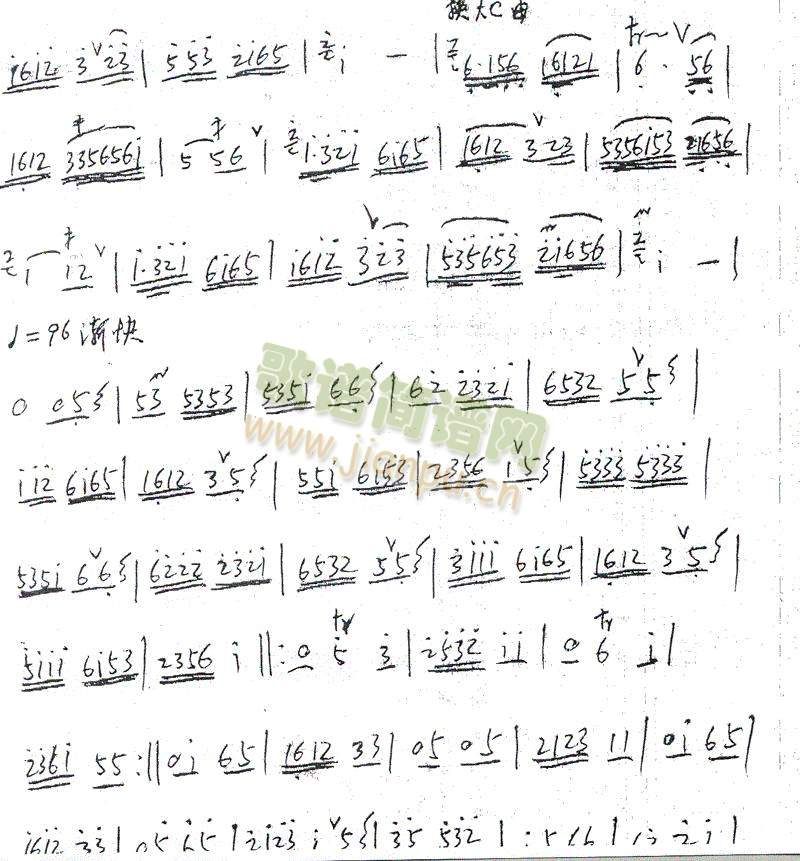 换大C曲
1612 3 23 | 553 2165 | 2 1 — | 2 6·156 16121 | 6 · 56 |
1612 3356561 | 5 56 | 2 1·321 6165 | 1612 3 23 | 5356153 21656 |
2 1 12 | 1·321 6165 | 1612 3 23 | 535653 21656 | 2 1 — |
♩=96 渐快
0 05 | 53 5353 | 5351 66 | 62 2321 | 6532 55 |
歌谱简谱网
www.jianpu.cn
112 6165 | 1612 35 | 551 6153 | 2356 15 | 5333 5333 |
5351 66 | 6222 2321 | 6532 55 | 3111 6165 | 1612 35 |
5111 6153 | 2356 1 ‖: 0 5 3 | 2532 11 | 0 6 1 |
2361 55 :‖ 01 65 | 1612 33 | 05 05 | 2123 11 | 01 65 |
1612 33 | 05 65 | 2123 1 5 | 35 532 |